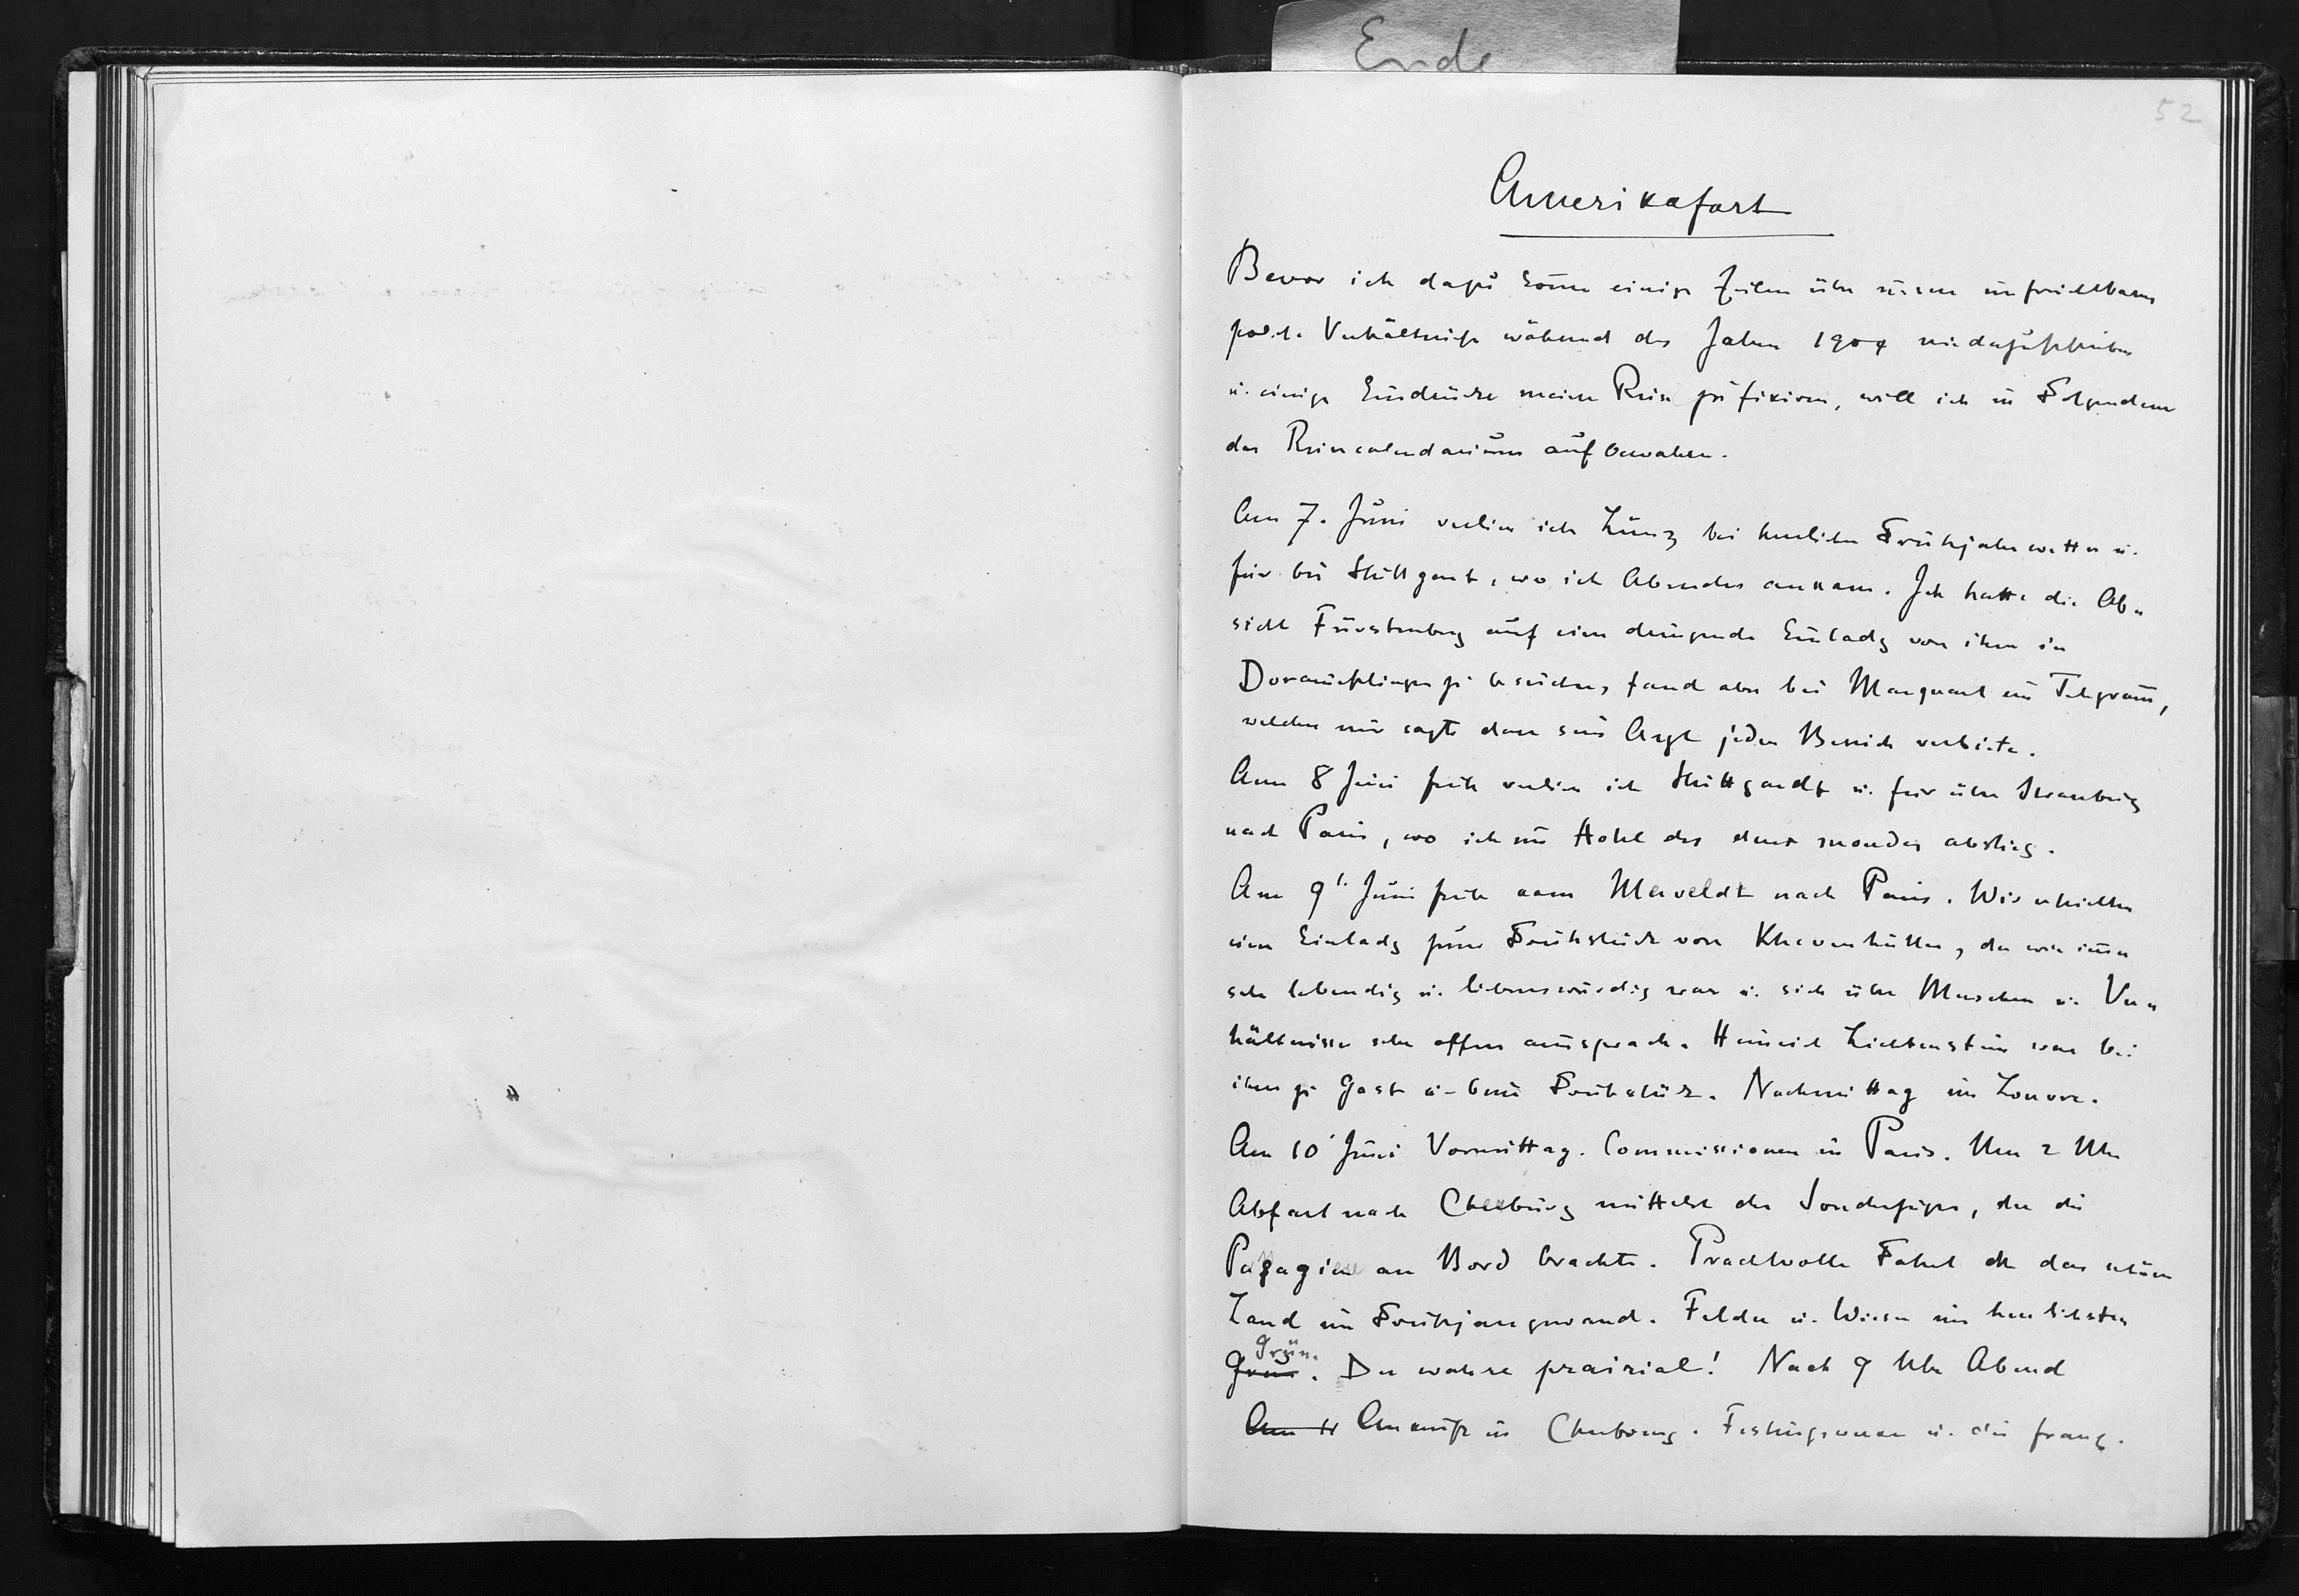 Ende
52
Amerikafart
Bevor ich dazu komme einige Zeilen über unsere unfruchtbaren
polit. Verhältnisse während des Jahres 1904 niederzuschreiben
u. einige Eindrücke meiner Reise zu fixiren, will ich in Folgendem
das Reisecalendarium aufbewahren.
Am 7. Juni verliess ich Linz bei herrlichem Frühjahrwetter u.
fur bis Stuttgart, wo ich Abends ankam. Ich hatte die Ab-
sicht Fürstenberg auf eine dringende Einladg von ihm in
Donaueschingen zu besuchen, fand aber bei Marquart ein Telegram,
welches mir sagte dass sein Arzt jeden Besuch verbiete.
Am 8 Juni früh verliess ich Stuttgardt u. fur über Strassburg
nach Paris, wo ich im Hotel des deux mondes abstieg.
Am 9t. Juni früh kam Merveldt nach Paris. Wir erhielten
eine Einladg zum Frühstück von Khevenhüller, der wie immer
sehr lebendig u. liebenswürdig war u. sich über Menschen u. Ver-
hältnisse sehr offen aussprach. Heinrich Liechtenstein war bei
ihm zu Gast u. beim Frühstück. Nachmittag im Louvre.
Am 10' Juni Vormittag. Commissionen in Paris. Um 2 Uhr
Abfart nach Cherburg mittelst des Sonderzuges, der die
Passagiere an Bord brachte. Prachtvolle Fahrt dch das schöne
Land im Frühjargewand. Felder u. Wiesen im herrlichsten
Grün.
Grün. Der wahre prairial! Nach 9 Uhr Abend
Am 11 Ankunft in Cherbourg. Festungswerke u. die franz.